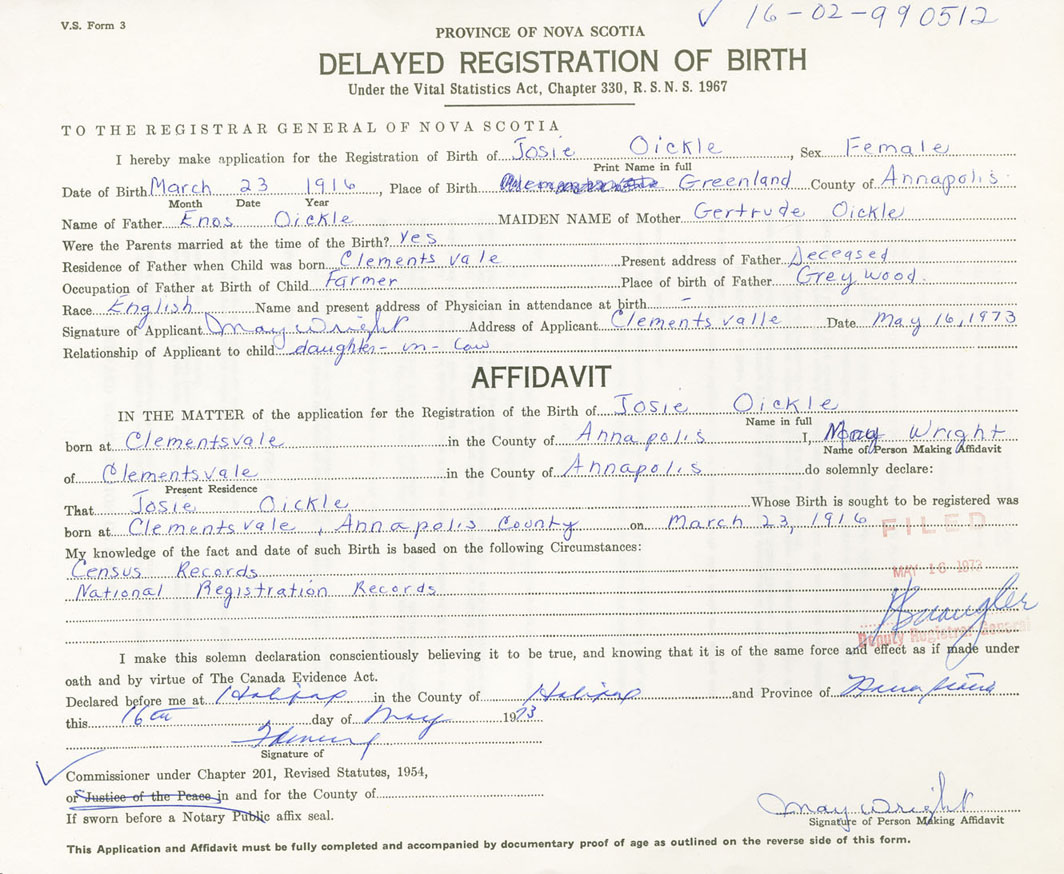 V.S. Form 3
✓ 16-02-990512
PROVINCE OF NOVA SCOTIA
DELAYED REGISTRATION OF BIRTH
Under the Vital Statistics Act, Chapter 330, R. S. N. S. 1967
TO THE REGISTRAR GENERAL OF NOVA SCOTIA
I hereby make application for the Registration of Birth of Josie Oickle, Sex Female
Print Name in full
Date of Birth March 23 1916, Place of Birth Greenland County of Annapolis
Month Date Year
Name of Father Enos Oickle MAIDEN NAME of Mother Gertrude Oickle
Were the Parents married at the time of the Birth? Yes
Residence of Father when Child was born Clements vale Present address of Father Deceased
Occupation of Father at Birth of Child Farmer Place of birth of Father Grey wood.
Race English Name and present address of Physician in attendance at birth –
Signature of Applicant May Wright Address of Applicant Clements valle Date May 16, 1973
Relationship of Applicant to child daughter-in-law
AFFIDAVIT
IN THE MATTER of the application for the Registration of the Birth of Josie Oickle
Name in full
born at Clementsvale in the County of Annapolis I, May Wright
Name of Person Making Affidavit
of Clementsvale in the County of Annapolis do solemnly declare:
Present Residence
That Josie Oickle Whose Birth is sought to be registered was
born at Clementsvale, Annapolis County on March 23, 1916
FILED
My knowledge of the fact and date of such Birth is based on the following Circumstances:
Census Records
MAY 16 1973
National Registration Records
Deputy Registrar General
I make this solemn declaration conscientiously believing it to be true, and knowing that it is of the same force and effect as if made under
oath and by virtue of The Canada Evidence Act.
Declared before me at Halifax in the County of Halifax and Province of Nova Scotia
this 16th day of May 1973
Signature of
✓ Commissioner under Chapter 201, Revised Statutes, 1954,
or Justice of the Peace in and for the County of
If sworn before a Notary Public affix seal.
May Wright
Signature of Person Making Affidavit
This Application and Affidavit must be fully completed and accompanied by documentary proof of age as outlined on the reverse side of this form.